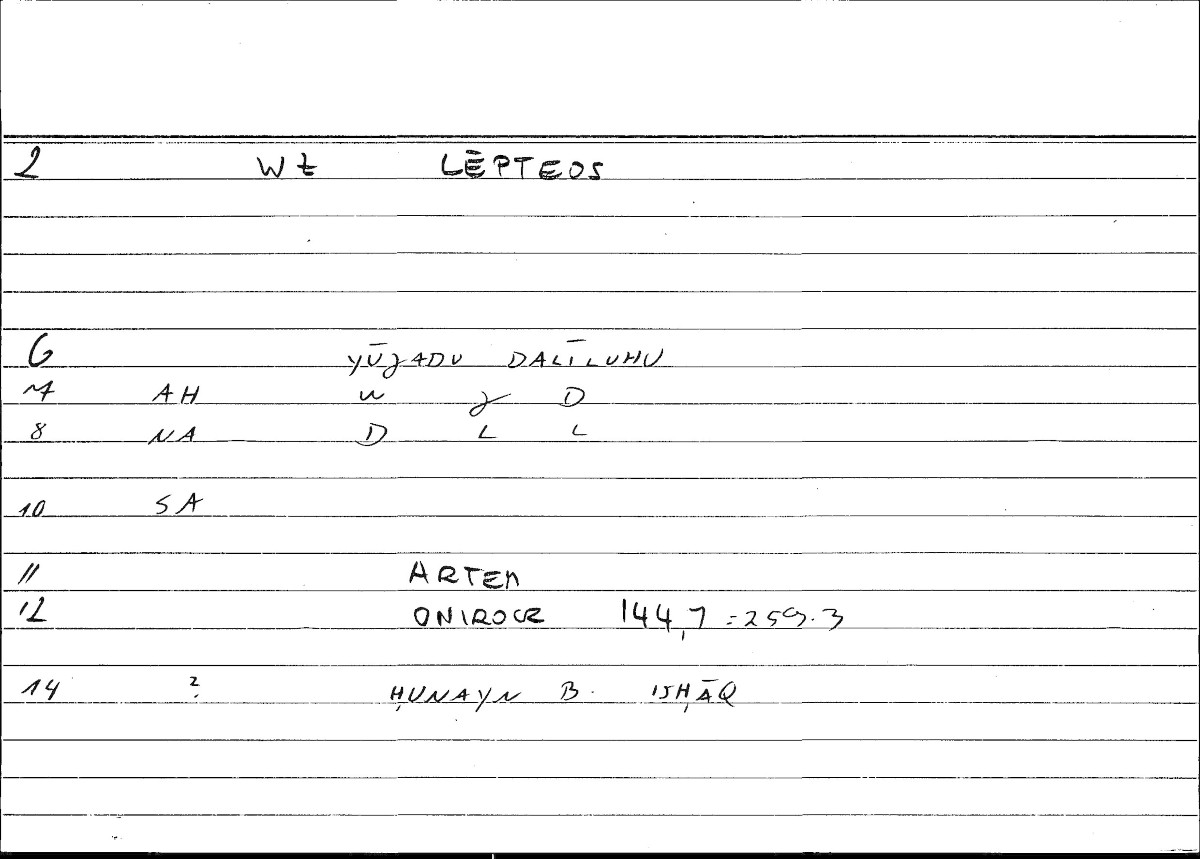 2 WZ LĒPTEOS
6 YŪǦADU DALĪLUHU
7 AH W Ǧ D
8 NA D L L
10 SA
11 ARTEM
12 ONIROCR 144,7 = 259.3
14 ? ḤUNAYN B. ISḤĀQ